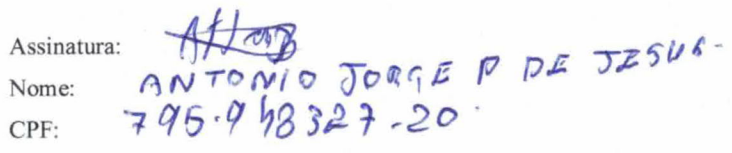 Assinatura:
Nome: ANTONIO JORGE P DE JESUS
CPF: 795.948327-20